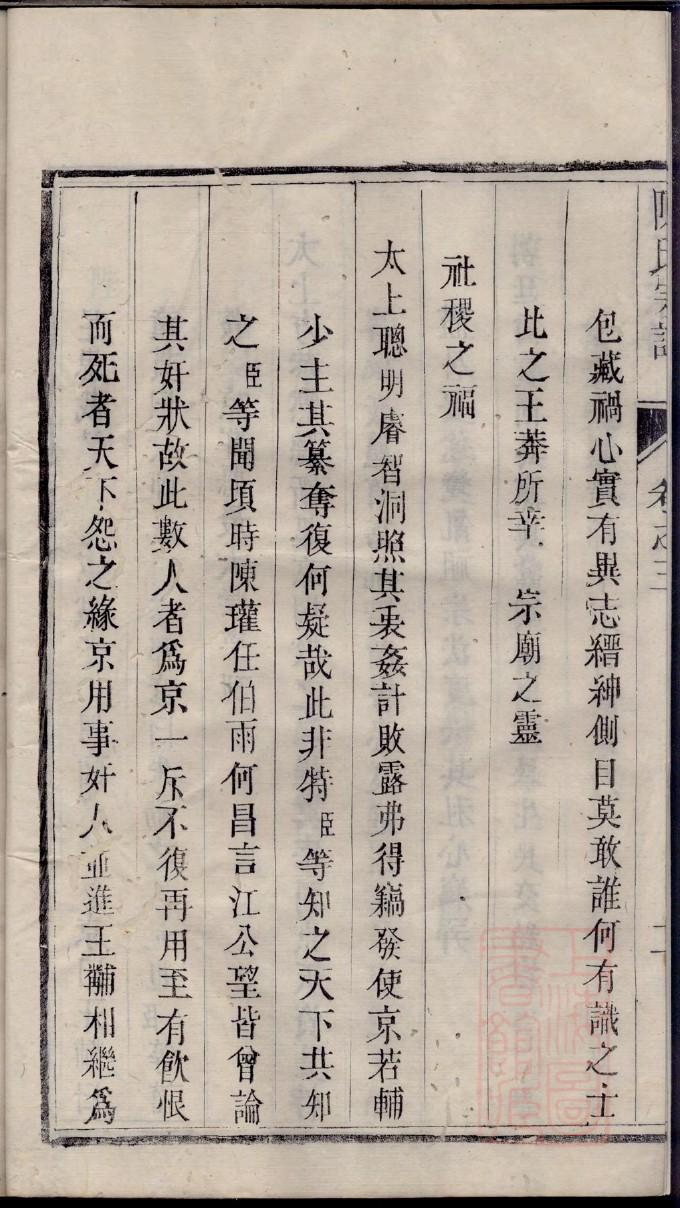 陳氏宗譜 卷之三 二
包藏禍心實有異志縉紳側目莫敢誰何有識之士
比之王莽所幸 宗廟之靈
社稷之福
太上聰明睿智洞照其衷姦計敗露弗得竊發使京若輔
少主其纂奪復何疑哉此非特臣等知之天下共知
之臣等聞頃時陳瓘任伯雨何昌言江公望皆曾論
其奸狀故此數人者爲京一斥不復再用至有飲恨
而死者天下怨之緣京用事奸人並進王黼相繼爲